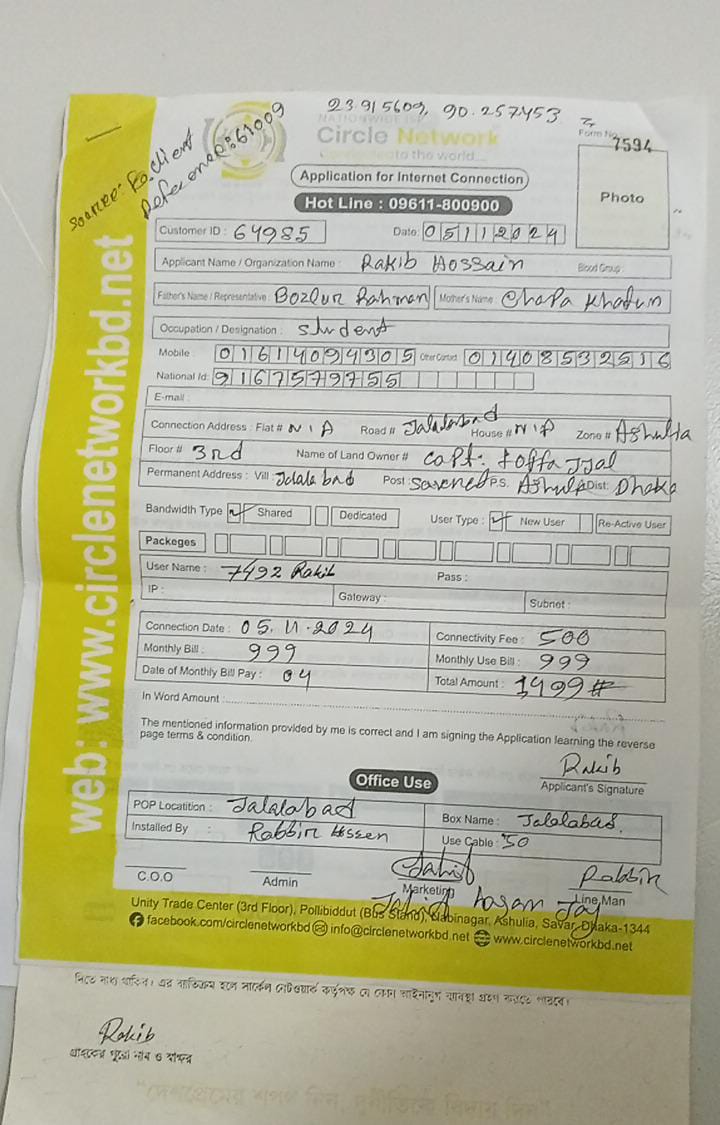 23.915609, 90.257453
Source: Re.client
Reference: 61009
NATIONWIDE ISP
Circle Network
Connected to the world....
Form No. 7594
Application for Internet Connection
Photo
Hot Line : 09611-800900
Customer ID : 64985 Date: 05112024
Applicant Name / Organization Name : Rakib Hossain Blood Group :
Father's Name / Representative : Bozlur Rahman Mother's Name : Chapa Khatun
Occupation / Designation : student
Mobile 01614094305 Other Contact 01408532516
National Id: 9167579755
E-mail :
Connection Address : Flat # N/A Road # Jalalabad House # N/A Zone # Ashulia
Floor # 3rd Name of Land Owner # Capt: Toffa
Permanent Address : Vill : Jalalabad Post : P.S. Ashulia Dist: Dhaka
Bandwidth Type Shared Dedicated User Type : New User Re-Active User
Packeges
User Name : 7492 Rakib Pass :
IP : Gateway : Subnet :
Connection Date : 05.11.2024 Connectivity Fee : 500
Monthly Bill : 999 Monthly Use Bill : 999
Date of Monthly Bill Pay : 04 Total Amount : 1499#
In Word Amount :
The mentioned information provided by me is correct and I am signing the Application learning the reverse
page terms & condition.
Rakib
Applicant's Signature
Office Use
POP Locatition : Jalalabad Box Name : Jalalabad.
Installed By : Rabbir Hssen Use Cable : 50
C.O.O Admin Jahid Marketing Rabbir Line Man
Jahid hasan Joy
Unity Trade Center (3rd Floor), Pollibiddut (Bus Stand), Nabinagar, Ashulia, Savar, Dhaka-1344
facebook.com/circlenetworkbd info@circlenetworkbd.net www.circlenetworkbd.net
web: www.circlenetworkbd.net
দিতে বাধ্য থাকিব। এর ব্যতিক্রম হলে সার্কেল নেটওয়ার্ক কর্তৃপক্ষ যে কোন আইনানুগ ব্যবস্থা গ্রহণ করতে পারবে।
Rakib
গ্রাহকের পুরো নাম ও স্বাক্ষর
"দেশপ্রেমের শপথ নিন, দুর্নীতিকে বিদায় দিন"